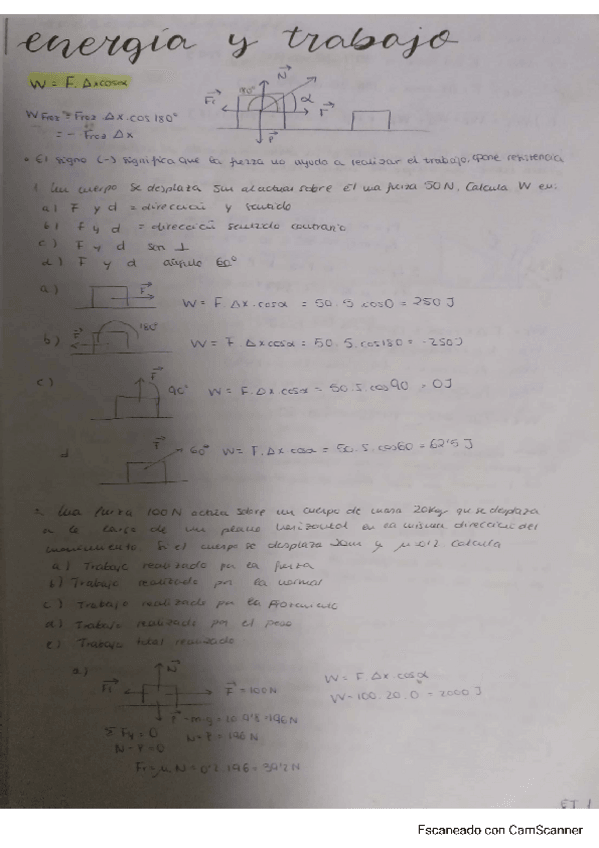 energía y trabajo
W = F. Δx cosα
N
90°
Fr
α
F
P
WFroz = Froz . Δx . cos 180°
= - Froz Δx
• El signo (-) significa que la fuerza no ayuda a realizar el trabajo, opone resistencia
1. Un cuerpo se desplaza 5m al actuar sobre él una fuerza 50N, Calcula W en:
a) F y d = dirección y sentido
b) F y d = dirección sentido contrario
c) F y d son ⊥
d) F y d ángulo 60°
a) F W = F. Δx . cosα = 50 . 5 . cos0 = 250 J
b) F 180° W = F. Δx cosα = 50. 5. cos180 = -250J
c) F 90° W = F. Δx cosα = 50. 5. cos90 = 0J
d F 60° W = F. Δx cosα = 50. 5. cos60 = 62'5 J
2. Una fuerza 100N actúa sobre un cuerpo de masa 20kg que se desplaza
a lo largo de un plano horizontal en la misma dirección del
movimiento Si el cuerpo se desplaza 20m y μ=0'2 calcula
a) Trabajo realizado por la fuerza
b) Trabajo realizado por la normal
c) Trabajo realizado por la
d) Trabajo realizado por el peso
e) Trabajo total realizado
a) N
Fr F = 100N
W = F. Δx . cosα
W = 100. 20. 0 = 2000 J
P = m.g = 9'8 = 196N
Σ Fy = 0 N = P = 196N
N - P = 0
Fr = μ N = 0'2 . 196 = 39'2N
ET 1
Escaneado con CamScanner